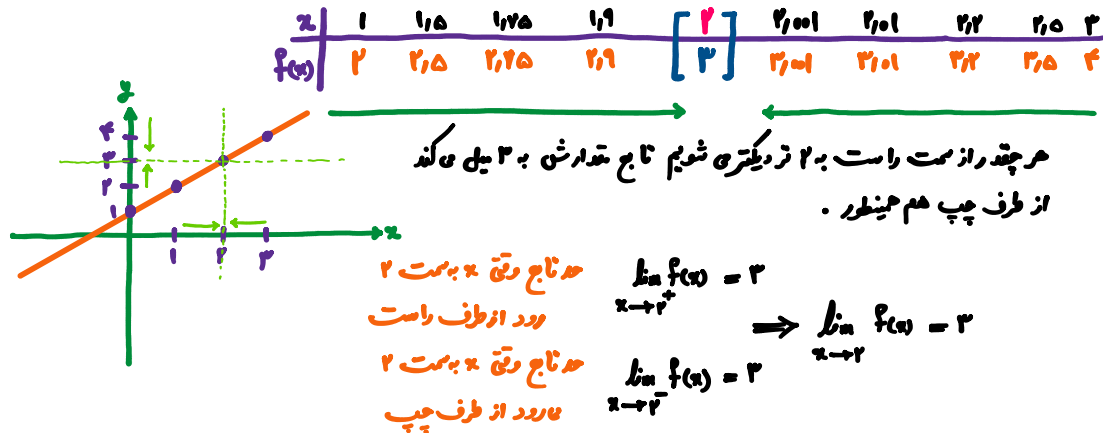 x ۱ ۱٫۵ ۱٫۷۵ ۱٫۹ [۲] ۲٫۰۰۱ ۲٫۰۱ ۲٫۲ ۲٫۵ ۳
f(x) ۲ ۲٫۵ ۲٫۷۵ ۲٫۹ [۳] ۳٫۰۰۱ ۳٫۰۱ ۳٫۲ ۳٫۵ ۴
y
۴
۳
۲
۱
x
۱ ۲ ۳
هر چقدر از سمت راست به ۲ نزدیکتر می شویم تابع مقدارش به ۳ میل می کند
از طرف چپ هم همینطور .
حد تابع وقتی x به سمت ۲
رود از طرف راست
lim f(x) = ۳
x→۲⁺
حد تابع وقتی x به سمت ۲
می رود از طرف چپ
lim f(x) = ۳
x→۲⁻
⇒ lim f(x) = ۳
x→۲